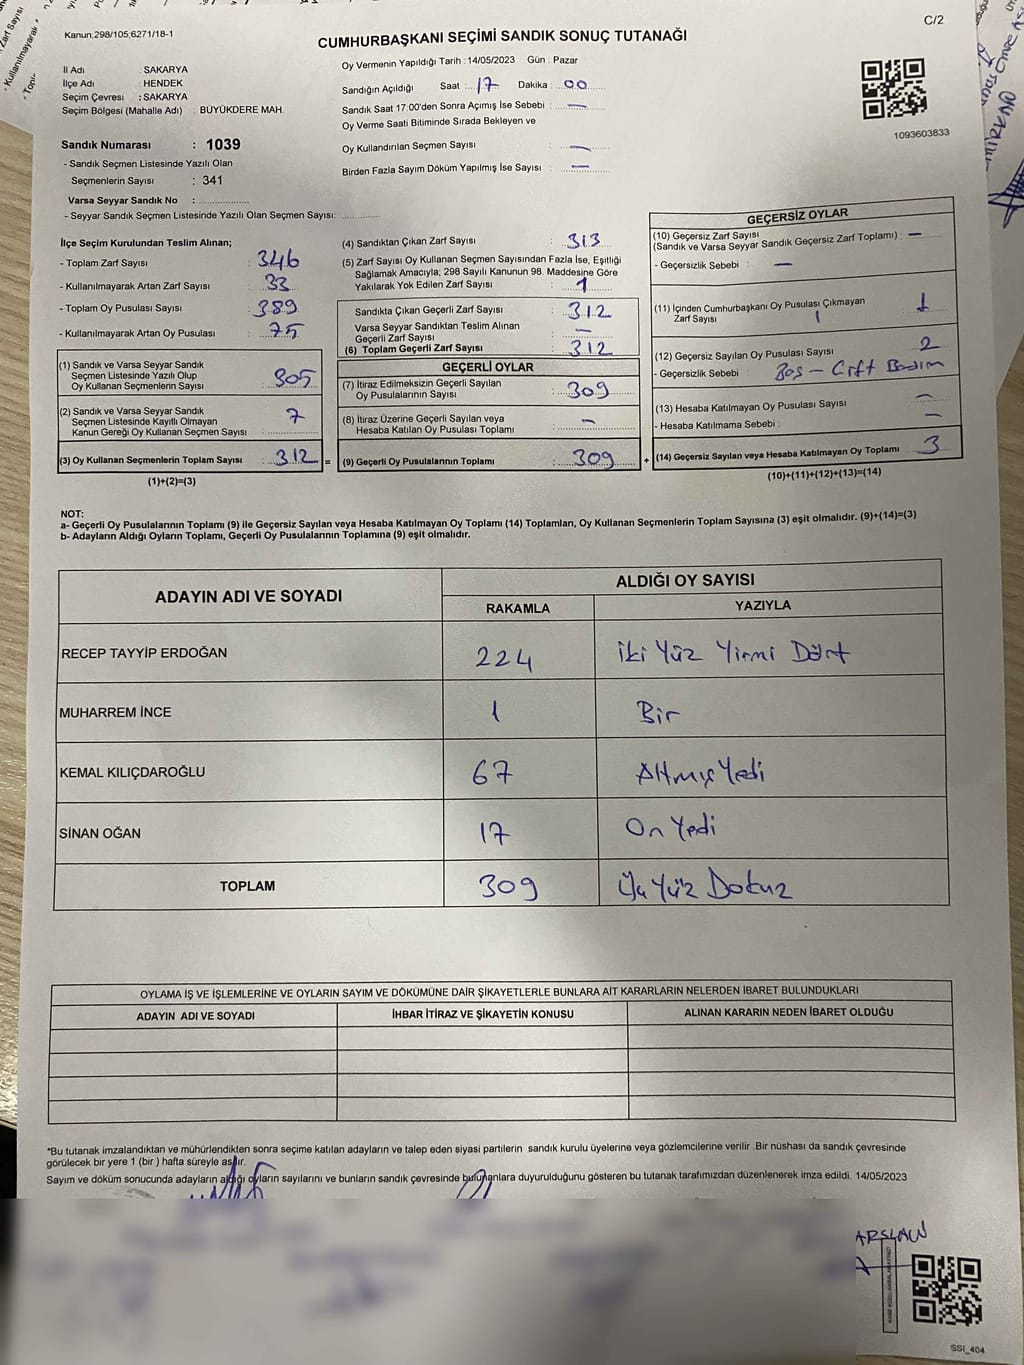 C/2
Kanun;298/105;6271/18-1
CUMHURBAŞKANI SEÇİMİ SANDIK SONUÇ TUTANAĞI
İl Adı : SAKARYA
İlçe Adı : HENDEK
Seçim Çevresi : SAKARYA
Seçim Bölgesi (Mahalle Adı) : BÜYÜKDERE MAH.
Sandık Numarası : 1039
- Sandık Seçmen Listesinde Yazılı Olan
Seçmenlerin Sayısı : 341
Varsa Seyyar Sandık No :
- Seyyar Sandık Seçmen Listesinde Yazılı Olan Seçmen Sayısı:
Oy Vermenin Yapıldığı Tarih : 14/05/2023 Gün : Pazar
Sandığın Açıldığı Saat : 17 Dakika : 00
Sandık Saat 17:00'den Sonra Açımış İse Sebebi : —
Oy Verme Saati Bitiminde Sırada Bekleyen ve
Oy Kullandırılan Seçmen Sayısı : —
Birden Fazla Sayım Döküm Yapılmış İse Sayısı : —
1093603833
İlçe Seçim Kurulundan Teslim Alınan;
- Toplam Zarf Sayısı : 346
- Kullanılmayarak Artan Zarf Sayısı : 33
- Toplam Oy Pusulası Sayısı : 389
- Kullanılmayarak Artan Oy Pusulası : 75
(1) Sandık ve Varsa Seyyar Sandık
Seçmen Listesinde Yazılı Olup
Oy Kullanan Seçmenlerin Sayısı : 305
(2) Sandık ve Varsa Seyyar Sandık
Seçmen Listesinde Kayıtlı Olmayan
Kanun Gereği Oy Kullanan Seçmen Sayısı : 7
(3) Oy Kullanan Seçmenlerin Toplam Sayısı : 312 =
(1)+(2)=(3)
(4) Sandıktan Çıkan Zarf Sayısı : 313
(5) Zarf Sayısı Oy Kullanan Seçmen Sayısından Fazla İse, Eşitliği
Sağlamak Amacıyla; 298 Sayılı Kanunun 98. Maddesine Göre
Yakılarak Yok Edilen Zarf Sayısı : 1
Sandıkta Çıkan Geçerli Zarf Sayısı : 312
Varsa Seyyar Sandıktan Teslim Alınan
Geçerli Zarf Sayısı : —
(6) Toplam Geçerli Zarf Sayısı : 312
GEÇERLİ OYLAR
(7) İtiraz Edilmeksizin Geçerli Sayılan
Oy Pusulalarının Sayısı : 309
(8) İtiraz Üzerine Geçerli Sayılan veya
Hesaba Katılan Oy Pusulası Toplamı : —
(9) Geçerli Oy Pusulalarının Toplamı : 309 +
GEÇERSİZ OYLAR
(10) Geçersiz Zarf Sayısı
(Sandık ve Varsa Seyyar Sandık Geçersiz Zarf Toplamı) : —
- Geçersizlik Sebebi : —
(11) İçinden Cumhurbaşkanı Oy Pusulası Çıkmayan
Zarf Sayısı 1 1
(12) Geçersiz Sayılan Oy Pusulası Sayısı : 2
- Geçersizlik Sebebi : Boş – Çift Basım
(13) Hesaba Katılmayan Oy Pusulası Sayısı : —
- Hesaba Katılmama Sebebi : —
(14) Geçersiz Sayılan veya Hesaba Katılmayan Oy Toplamı : 3
(10)+(11)+(12)+(13)=(14)
NOT:
a- Geçerli Oy Pusulalarının Toplamı (9) ile Geçersiz Sayılan veya Hesaba Katılmayan Oy Toplamı (14) Toplamları, Oy Kullanan Seçmenlerin Toplam Sayısına (3) eşit olmalıdır. (9)+(14)=(3)
b- Adayların Aldığı Oyların Toplamı, Geçerli Oy Pusulalarının Toplamına (9) eşit olmalıdır.
ADAYIN ADI VE SOYADI ALDIĞI OY SAYISI
RAKAMLA YAZIYLA
RECEP TAYYİP ERDOĞAN 224 İki Yüz Yirmi Dört
MUHARREM İNCE 1 Bir
KEMAL KILIÇDAROĞLU 67 Altmış Yedi
SİNAN OĞAN 17 On Yedi
TOPLAM 309 Üç Yüz Dokuz
OYLAMA İŞ VE İŞLEMLERİNE VE OYLARIN SAYIM VE DÖKÜMÜNE DAİR ŞİKAYETLERLE BUNLARA AİT KARARLARIN NELERDEN İBARET BULUNDUKLARI
ADAYIN ADI VE SOYADI İHBAR İTİRAZ VE ŞİKAYETİN KONUSU ALINAN KARARIN NEDEN İBARET OLDUĞU
*Bu tutanak imzalandıktan ve mühürlendikten sonra seçime katılan adayların ve talep eden siyasi partilerin sandık kurulu üyelerine veya gözlemcilerine verilir .Bir nüshası da sandık çevresinde
görülecek bir yere 1 (bir ) hafta süreyle asılır.
Sayım ve döküm sonucunda adayların aldığı oyların sayılarını ve bunların sandık çevresinde bulunanlara duyurulduğunu gösteren bu tutanak tarafımızdan düzenlenerek imza edildi. 14/05/2023
ARSLAN
SSI_404